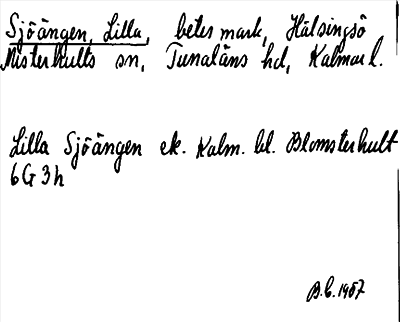 Sjöängen, Lilla, betesmark, Hälsingsö
Misterhults sn, Tunaläns hd, Kalmar l.
Lilla Sjöängen ek. Kalm. bl. Blomsterhult
6G3h
B.C. 1957